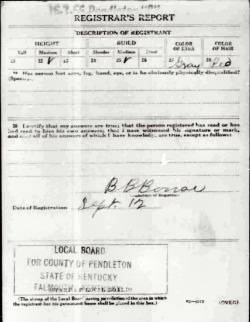 REGISTRAR'S REPORT
DESCRIPTION OF REGISTRANT
HEIGHT BUILD COLOR OF EYES COLOR OF HAIR
Tall Medium Short Slender Medium Stout
21 22 23 24 25 26 27 Gray 28 Red
29 Has person lost arm, leg, hand, eye, or is he obviously physically disqualified?
(Specify)
30 I certify that my answers are true; that the person registered has read or has
had read to him his own answers; that I have witnessed his signature or mark,
and that all of his answers of which I have knowledge are true, except as follows:
Date of Registration Sept. 12
LOCAL BOARD
FOR COUNTY OF PENDLETON
STATE OF KENTUCKY
FALMOUTH
(The stamp of the Local Board having jurisdiction of the area in which
the registrant has his permanent home shall be placed in this box.)
(OVER)